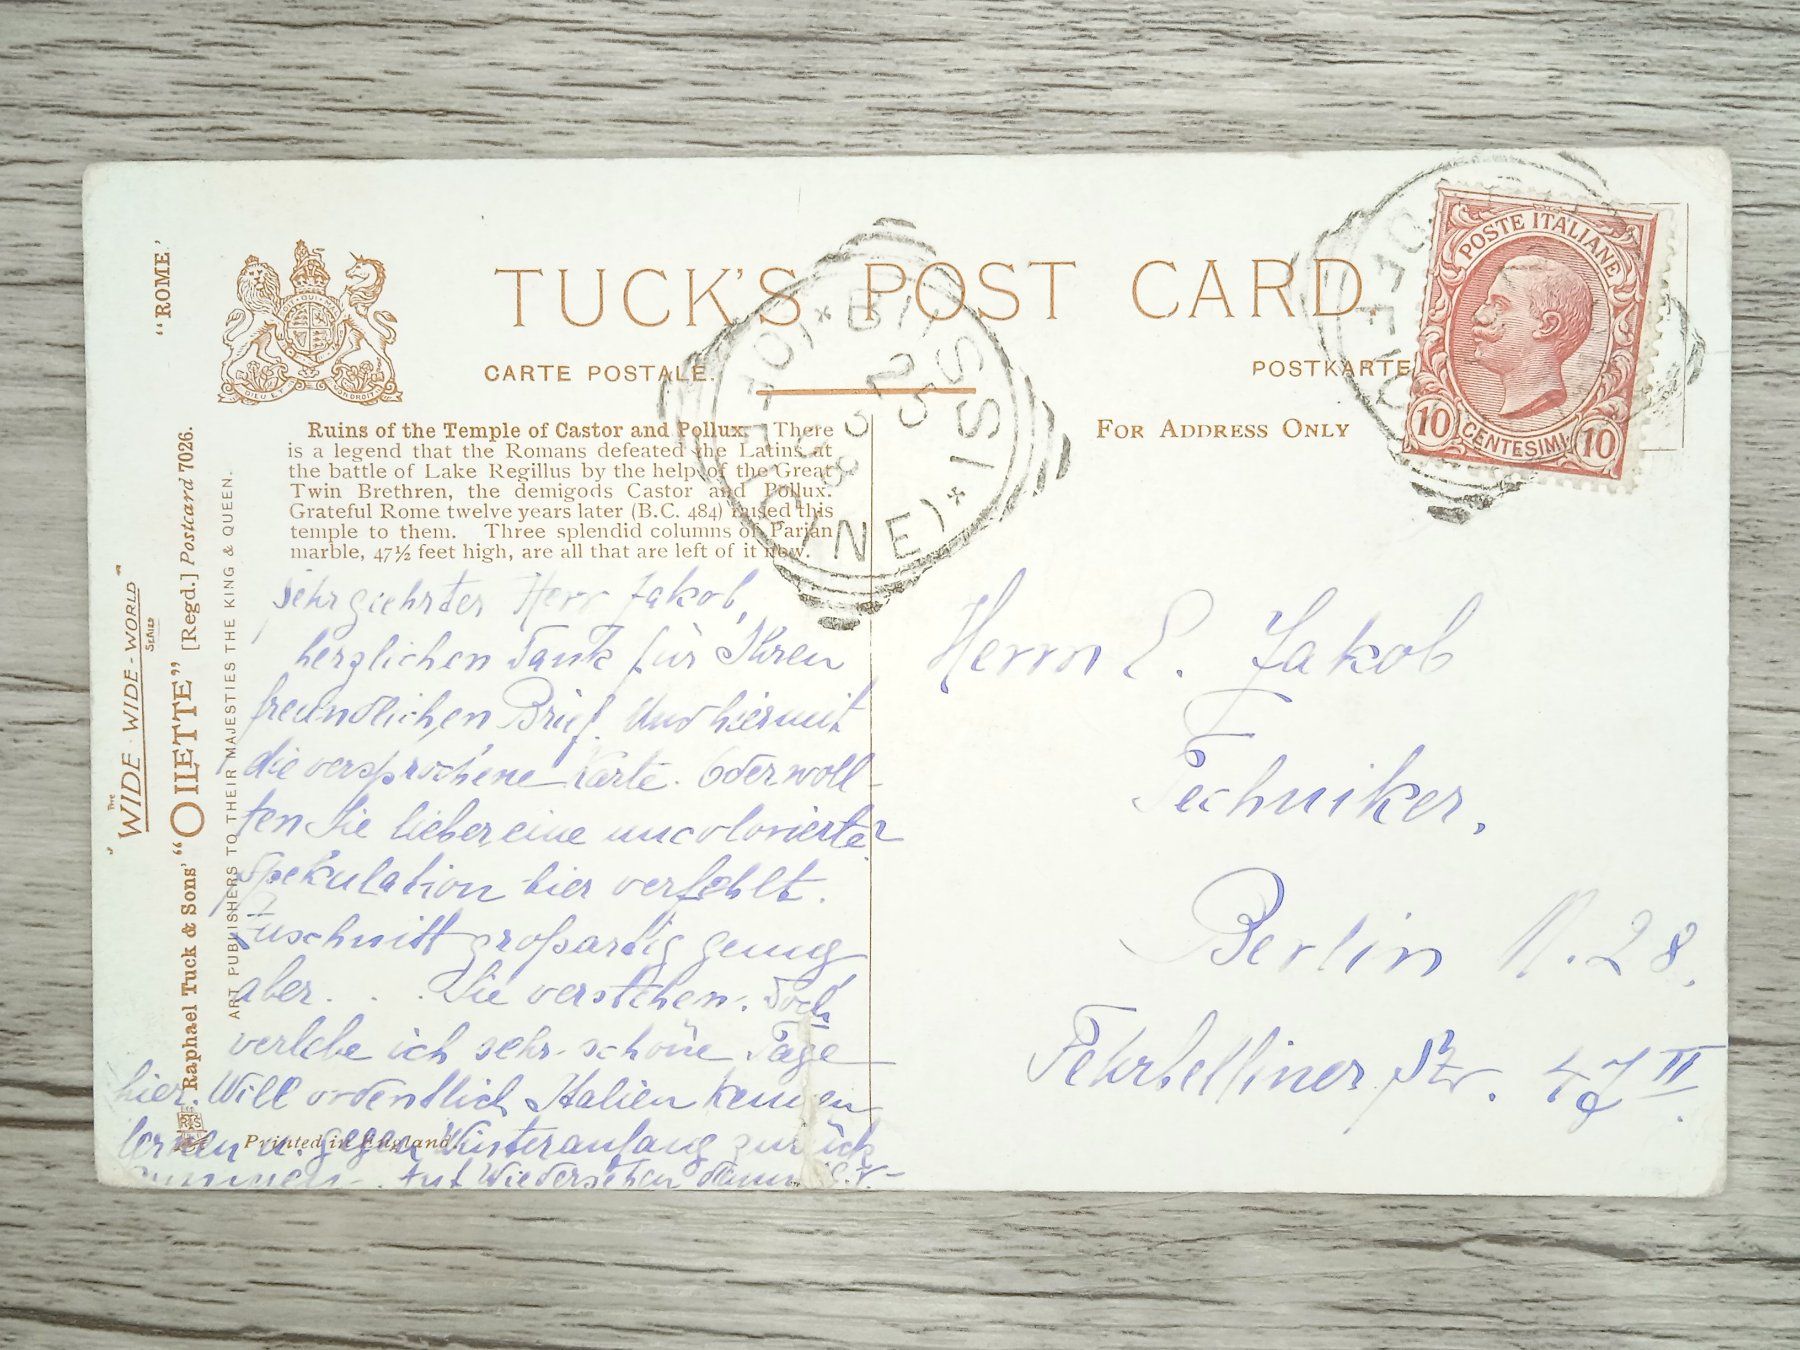 "ROME"
The
"WIDE-WIDE-WORLD"
SERIES
Raphael Tuck & Sons' "OILETTE" [Regd.] Postcard 7026.
ART PUBLISHERS TO THEIR MAJESTIES THE KING & QUEEN.
DIEU ET MON DROIT
TUCK'S POST CARD
CARTE POSTALE.
POSTKARTE
FOR ADDRESS ONLY
Ruins of the Temple of Castor and Pollux. There
is a legend that the Romans defeated the Latins at
the battle of Lake Regillus by the help of the Great
Twin Brethren, the demigods Castor and Pollux.
Grateful Rome twelve years later (B.C. 484) raised this
temple to them. Three splendid columns of Parian
marble, 47½ feet high, are all that are left of it now.
25
8
POSTE ITALIANE
10 CENTESIMI 10
Sehr geehrter Herr Jakob,
herzlichen Dank für Ihren
freundlichen Brief. Und hiermit
die versprochene Karte. Oder woll-
ten Sie lieber eine uncolorierte?
Spekulation hier verfehlt.
Zuschnitt großartig genug
aber . . . Sie verstehen. Doch
verlebe ich sehr schöne Tage
hier. Will ordentlich Italien kennen
lernen u. gegen Winteranfang zurück
Auf Wiedersehen dann
Printed in England.
Herrn E. Jakob
Techniker,
Berlin N. 28.
Fehrbelliner Str. 47 II